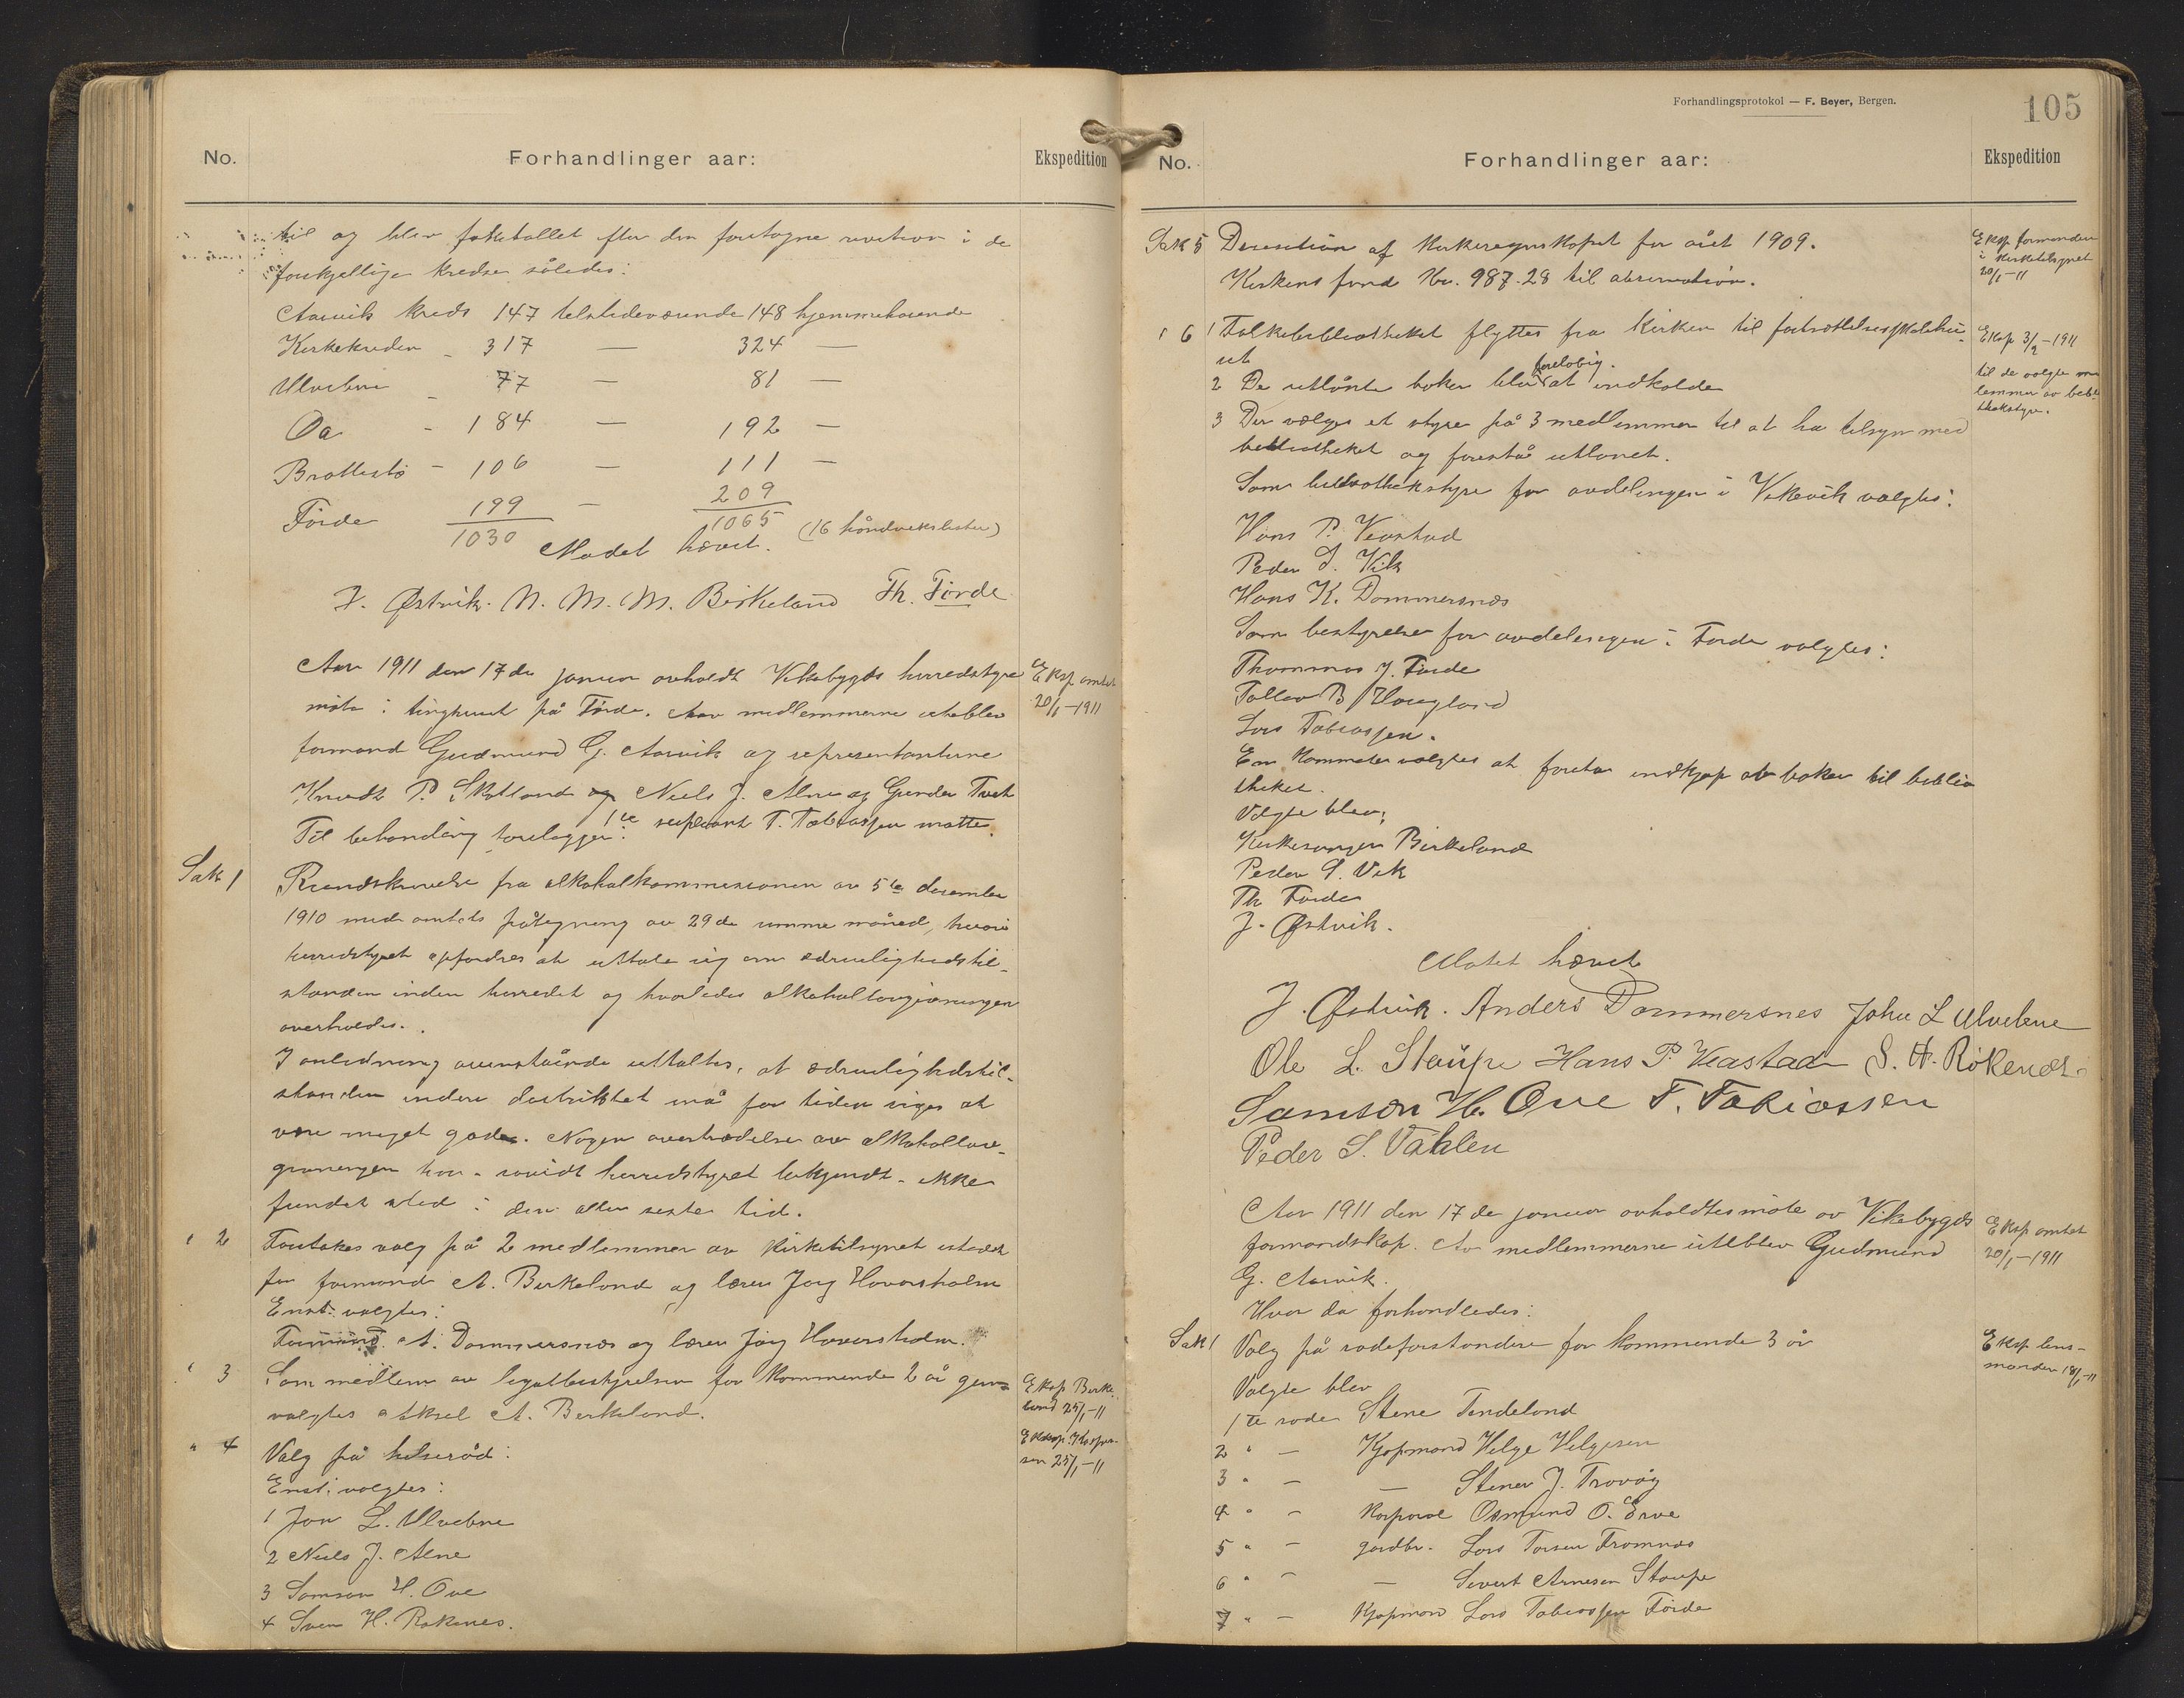 No.
Forhandlinger aar:
Ekspedition
til og blev folketallet efter den foretagne revition i de
forskjellige kredse således:
Aarvik kreds 147 tilstedeværende 148 hjemmehørende
Kirkekredsen - 317 — 324 —
Ulvebne - 77 — 81 —
Oa - 184 — 192 —
Brattestø - 106 — 111 —
Førde 199 — 209
1030 1065 (16 håndverkslister)
Mødet hævet.
J. Østvik. N. M. M. Birkeland Th. Førde
Aar 1911 den 17de januar avholdt Vikebygds herredstyre
møte i tinghuset på Førde. Av medlemmerne uteblev
formand Gudmund G. Aarvik og repræsentanterne
Knudt P. Skotland og Niels J. Alne og Gunder Tveit
1ste supleant T. Tobiassen møtte.
Til behandling forelægges:
Eksp amtet
20/1-1911
Sak 1
Rundskrivelse fra alkoholkommissionen av 5te december
1910 med amtets påtegning av 29de samme måned, hvori
herredstyret opfordres at uttale sig om ædruelighedstil-
standen inden herredet og hvorledes alkohollovgivningen
overholdes.
I anledning ovenstående uttaltes, at ædruelighedstil-
standen inden distriktet må for tiden siges at
være meget gode. Nogen overtrædelse av alkohollov-
givningen har - såvidt herredstyret bekjendt - ikke
fundet sted i den aller seneste tid.
" 2
Foretokes valg på 2 medlemmer av kirketilsynet istedet
for formand A. Birkeland og lærer Jörg Hovarsholm
Enst. valgtes:
Formand A. Dommersnes og lærer Jörg Hovarsholm.
" 3
Som medlem av legatbestyrelsen for kommende 2 år gjen-
valgtes Aksel A. Birkeland.
Eksp Birke-
land 25/1-11
" 4
Valg på helseråd:
Enst. valgtes:
1 Jon L. Ulvebne
2 Niels J. Alne
3 Samson H. Ove
4 Sven H. Røkenes.
25/1-11
Forhandlingsprotokol — F. Beyer, Bergen.
105
No.
Forhandlinger aar:
Ekspedition
Sak 5 Decision af kirkeregnskapet for året 1909.
Kirkens fond Kr. 987.28 til observation.
Eksp formanden
i kirketilsynet
20/1-11
" 6 1 Folkebibliotheket flyttes fra kirken til fortsættelsesskolehu-
set
2 De utlånte bøker blir foreløbig. at indkalde
3 Der vælges et styre på 3 medlemmer til at ha tilsyn med
bibliotheket og forestå utlånet.
Eksp 3/2-1911
til de valgte med
lemmer av bibli
thekstyre.
Som bibliothekstyre for avdelingen i Vikevik valgtes:
Hans P. Vestad
Peder S. Vik
Hans K. Dommersnes
Som bestyrelse for avdelingen i Førde valgtes:
Thommas J. Førde
Tollev B Haugland
Lars Tobiassen.
En komite valgtes at foreta indkjøp av bøker til biblio
theket.
Valgte blev:
Kirkesanger Birkeland
Peder S. Vik
Th Førde
J. Østvik.
Møtet hævet
J. Østvik. Anders Dommersnes John L Ulvebne
Ole L. Staupe Hans P. Veastad S. H. Røkenes.
Samson H. Ove T. Tobiassen
Peder S. Våhlen
Aar 1911 den 17de januar avholdtes møte av Vikebygds
formandskap. Av medlemmerne uteblev Gudmund
G. Aarvik.
Eksp amtet
20/1-1911
Hvor da forhandledes:
Sak 1 Valg på rodeforstandere for kommende 3 år
Eksp lens-
manden 18/1-11
Valgte blev
1te rode Stene Tindeland
2 " — Kjøpmand Helge Helgesen
3 " — — Stener J. Trovåg
4 " — Korporal Osmund O. Erve
5 " — gardbr. Lars Torsen Fromnes
6 " — — Sivert Arnesen Staupe
7 " — Kjøpmand Lars Tobiassen Førde